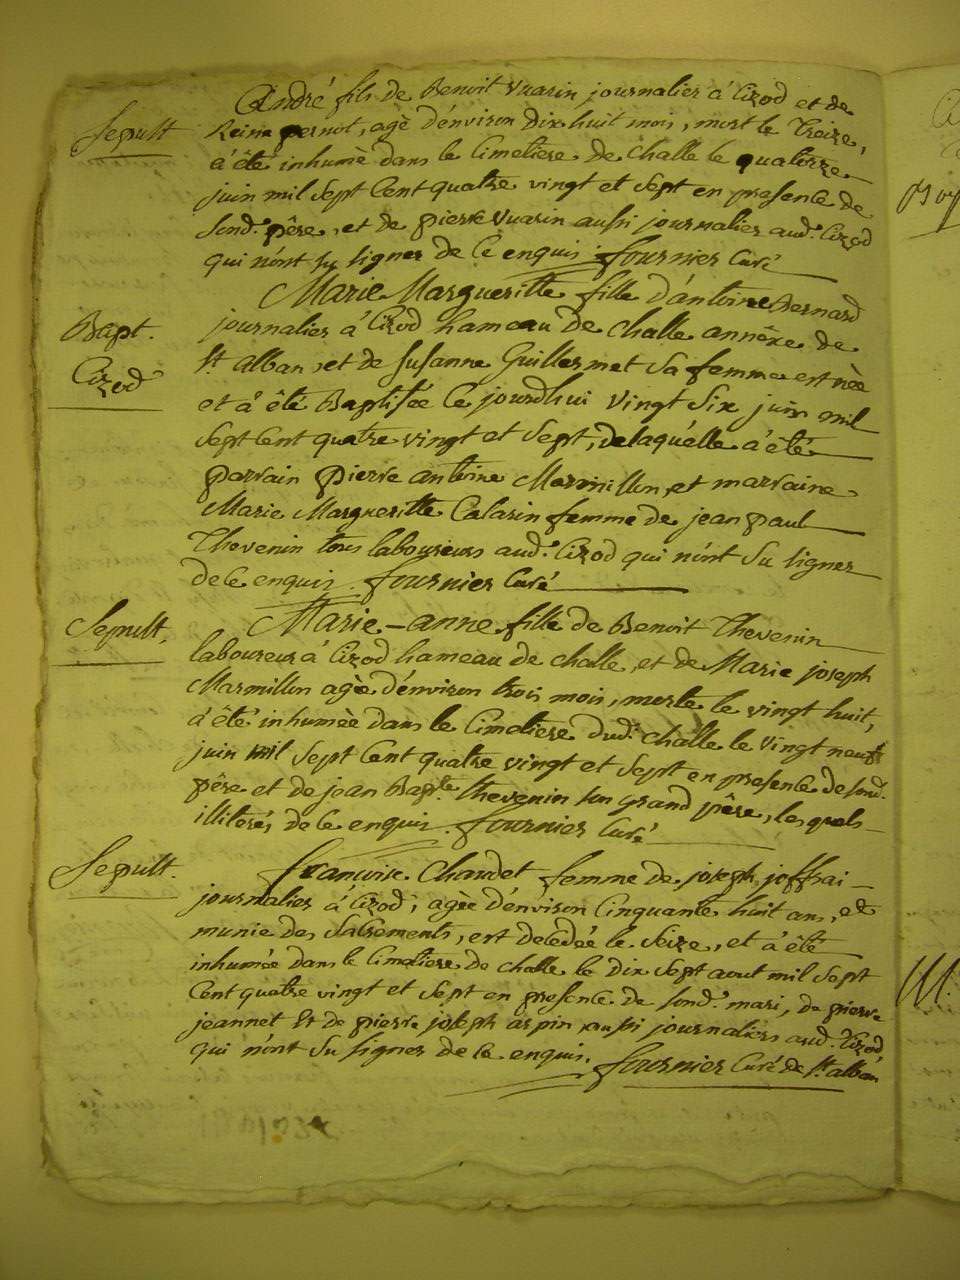 Sepult
André fils de Benoit Vuarin journalier à Cizod et de
Reine pernot, agè d'énviron dix huit mois, mort le treize,
à été inhumè dans le Cimetiere de Challe le quatorze
juin mil sept Cent quatre vingt et sept en presence de
sond. pêre, et de pierre Vuarin aussi journalier aud. Cizod
qui n'ont su signer de ce enquis. fournier Curé
Bapt.
Cizod
Marie Margueritte fille d'antoine Bernard
journalier à Cizod hameau de Challe annêxe de
St alban, et de susanne Guillermet sa femme est nèe
et à été Baptisée ce jourdhui vingt six juin mil
sept Cent quatre vingt et sept, de laquélle à été
parrain pierre antoine Marmillon, et marraine
Marie Margueritte Calarin femme de jean paul
Thevenin tous laboureurs aud. Cizod qui n'ont su signer
de ce enquis. fournier Curé
Sepult.
Marie-anne fille de Benoit Thevenin
laboureur à Cizod hameau de Challe, et de Marie joseph
Marmillon agèe d'énviron trois mois, morte le vingt huit,
à été inhumèe dans le Cimetiere dud. Challe le vingt neuf
juin mil sept Cent quatre vingt et sept en presence de sond.
pêre et de jean Bapte. thevenin son grand pêre, les quels
illiterés de ce enquis. fournier Curé
Sepult.
francoise Chaudet femme de joseph joffrai
journalier à Cizod, agèe d'énviron Cinquante huit ans, et
munie des sacrements, est decedée le seize, et à été
inhumée dans le Cimetiere de Challe le dix sept aout mil sept
Cent quatre vingt et sept en presence de sond. mari, de pierre
jeannet et de pierre joseph arpin aussi journaliers aud. Cizod
qui n'ont su signer de ce enquis. fournier Curé de St. alban